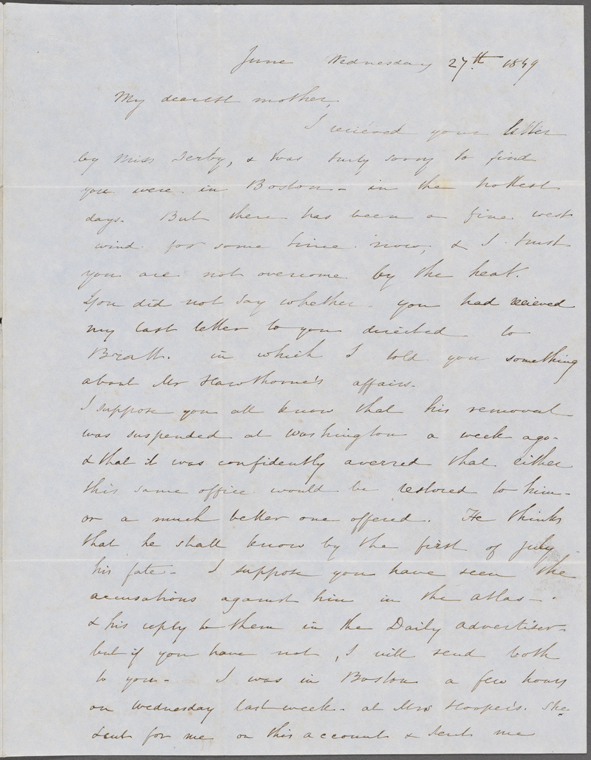 June Wednesday 27th 1849
My dearest mother,
I recieved your letter
by Miss Derby, & was truly sorry to find
you were in Boston - in the hottest
days. But there has been a fine west
wind for some time now, & I trust
you are not overcome by the heat.
You did not say whether you had recieved
my last letter to you directed to
Bratt. in which I told you something
about Mr Hawthorne's affairs.
I suppose you all know that his removal
was suspended at Washington a week ago -
& that it was confidently averred that either
this same office would be restored to him -
or a much better one offered. He thinks
that he shall know by the first of July
his fate - I suppose you have seen the
accusations against him in the Atlas -
& his reply to them in the Daily Advertiser -
but if you have not, I will send both
to you - I was in Boston a few hours
on Wednesday last week - at Mrs Hooper's. She
sent for me on this account & sent me